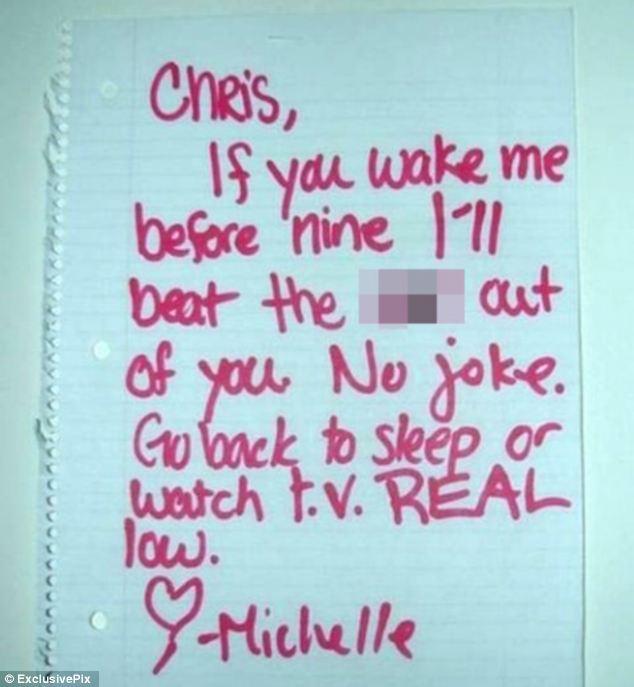 Chris,
If you wake me
before nine I'll
beat the out
of you. No joke.
Go back to sleep or
watch t.v. REAL
low.
-Michelle
© ExclusivePix